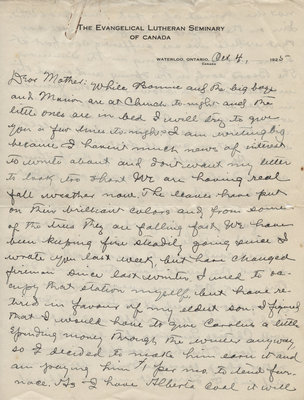 THE EVANGELICAL LUTHERAN SEMINARY
OF CANADA
WATERLOO, ONTARIO, Oct 4, 1925
CANADA
Dear Mother: While Bonnie and the big boys
and Marion are at Church to-night and the
little ones are in bed I will try to give
you a few lines to-night. I am writing big
because I haven't much news of interest
to write about and don't want my letter
to look too short. We are having real
fall weather now. The leaves have put
on their brilliant colors and from some
of the trees they are falling fast. We have
been keeping fire steadily going since I
wrote you last week but have changed
firemen since last winter. I used to oc-
cupy that station myself, but have re-
tired in favour of my eldest son. I figured
that I would have to give Carolus a little
spending money through the winter anyway,
so I decided to make him earn it and
am paying him $1 per mo to tend fur-
nace. As I have Alberta coal it will